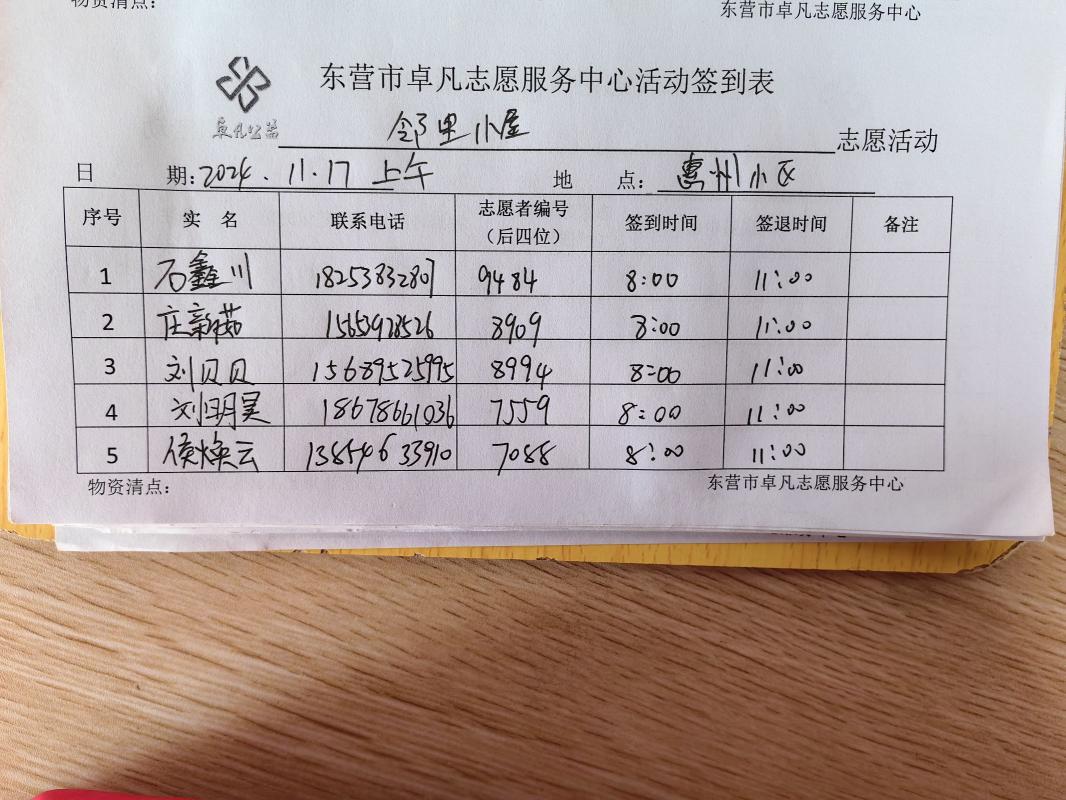 物资清点：
东营市卓凡志愿服务中心
卓凡公益
东营市卓凡志愿服务中心活动签到表
邻里小屋 志愿活动
日 期：2024.11.17 上午 地 点：惠州小区
序号 实 名 联系电话 志愿者编号（后四位） 签到时间 签退时间 备注
1 石鑫川 18253832807 9484 8:00 11:00
2 庄新茹 15653928526 8909 8:00 11:00
3 刘贝贝 15689525995 8994 8:00 11:00
4 刘明昊 18678661036 7559 8:00 11:00
5 侯焕云 13854633910 7088 8:00 11:00
物资清点：
东营市卓凡志愿服务中心